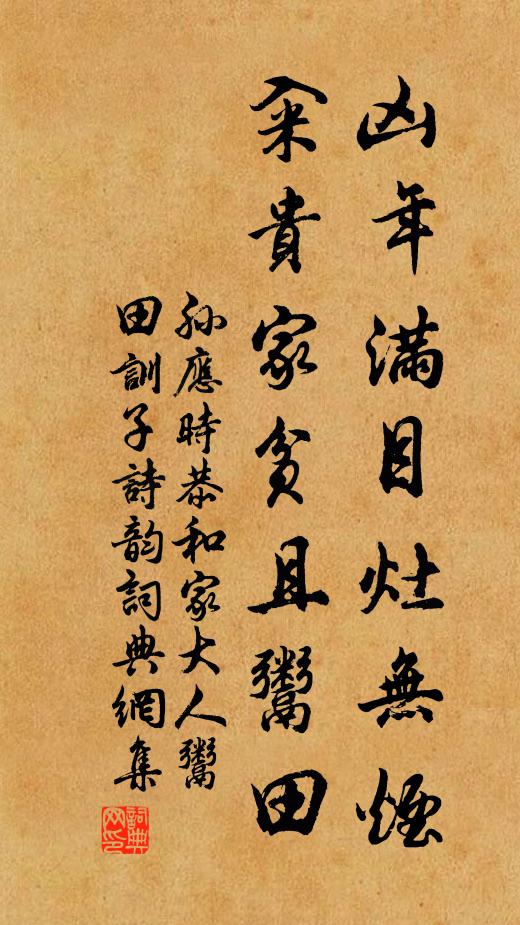 凶年滿目灶無煙
籴貴家貧且鬻田
孫應時恭和家大人鬻
田訓子詩韵詞典網集
詞典
网印